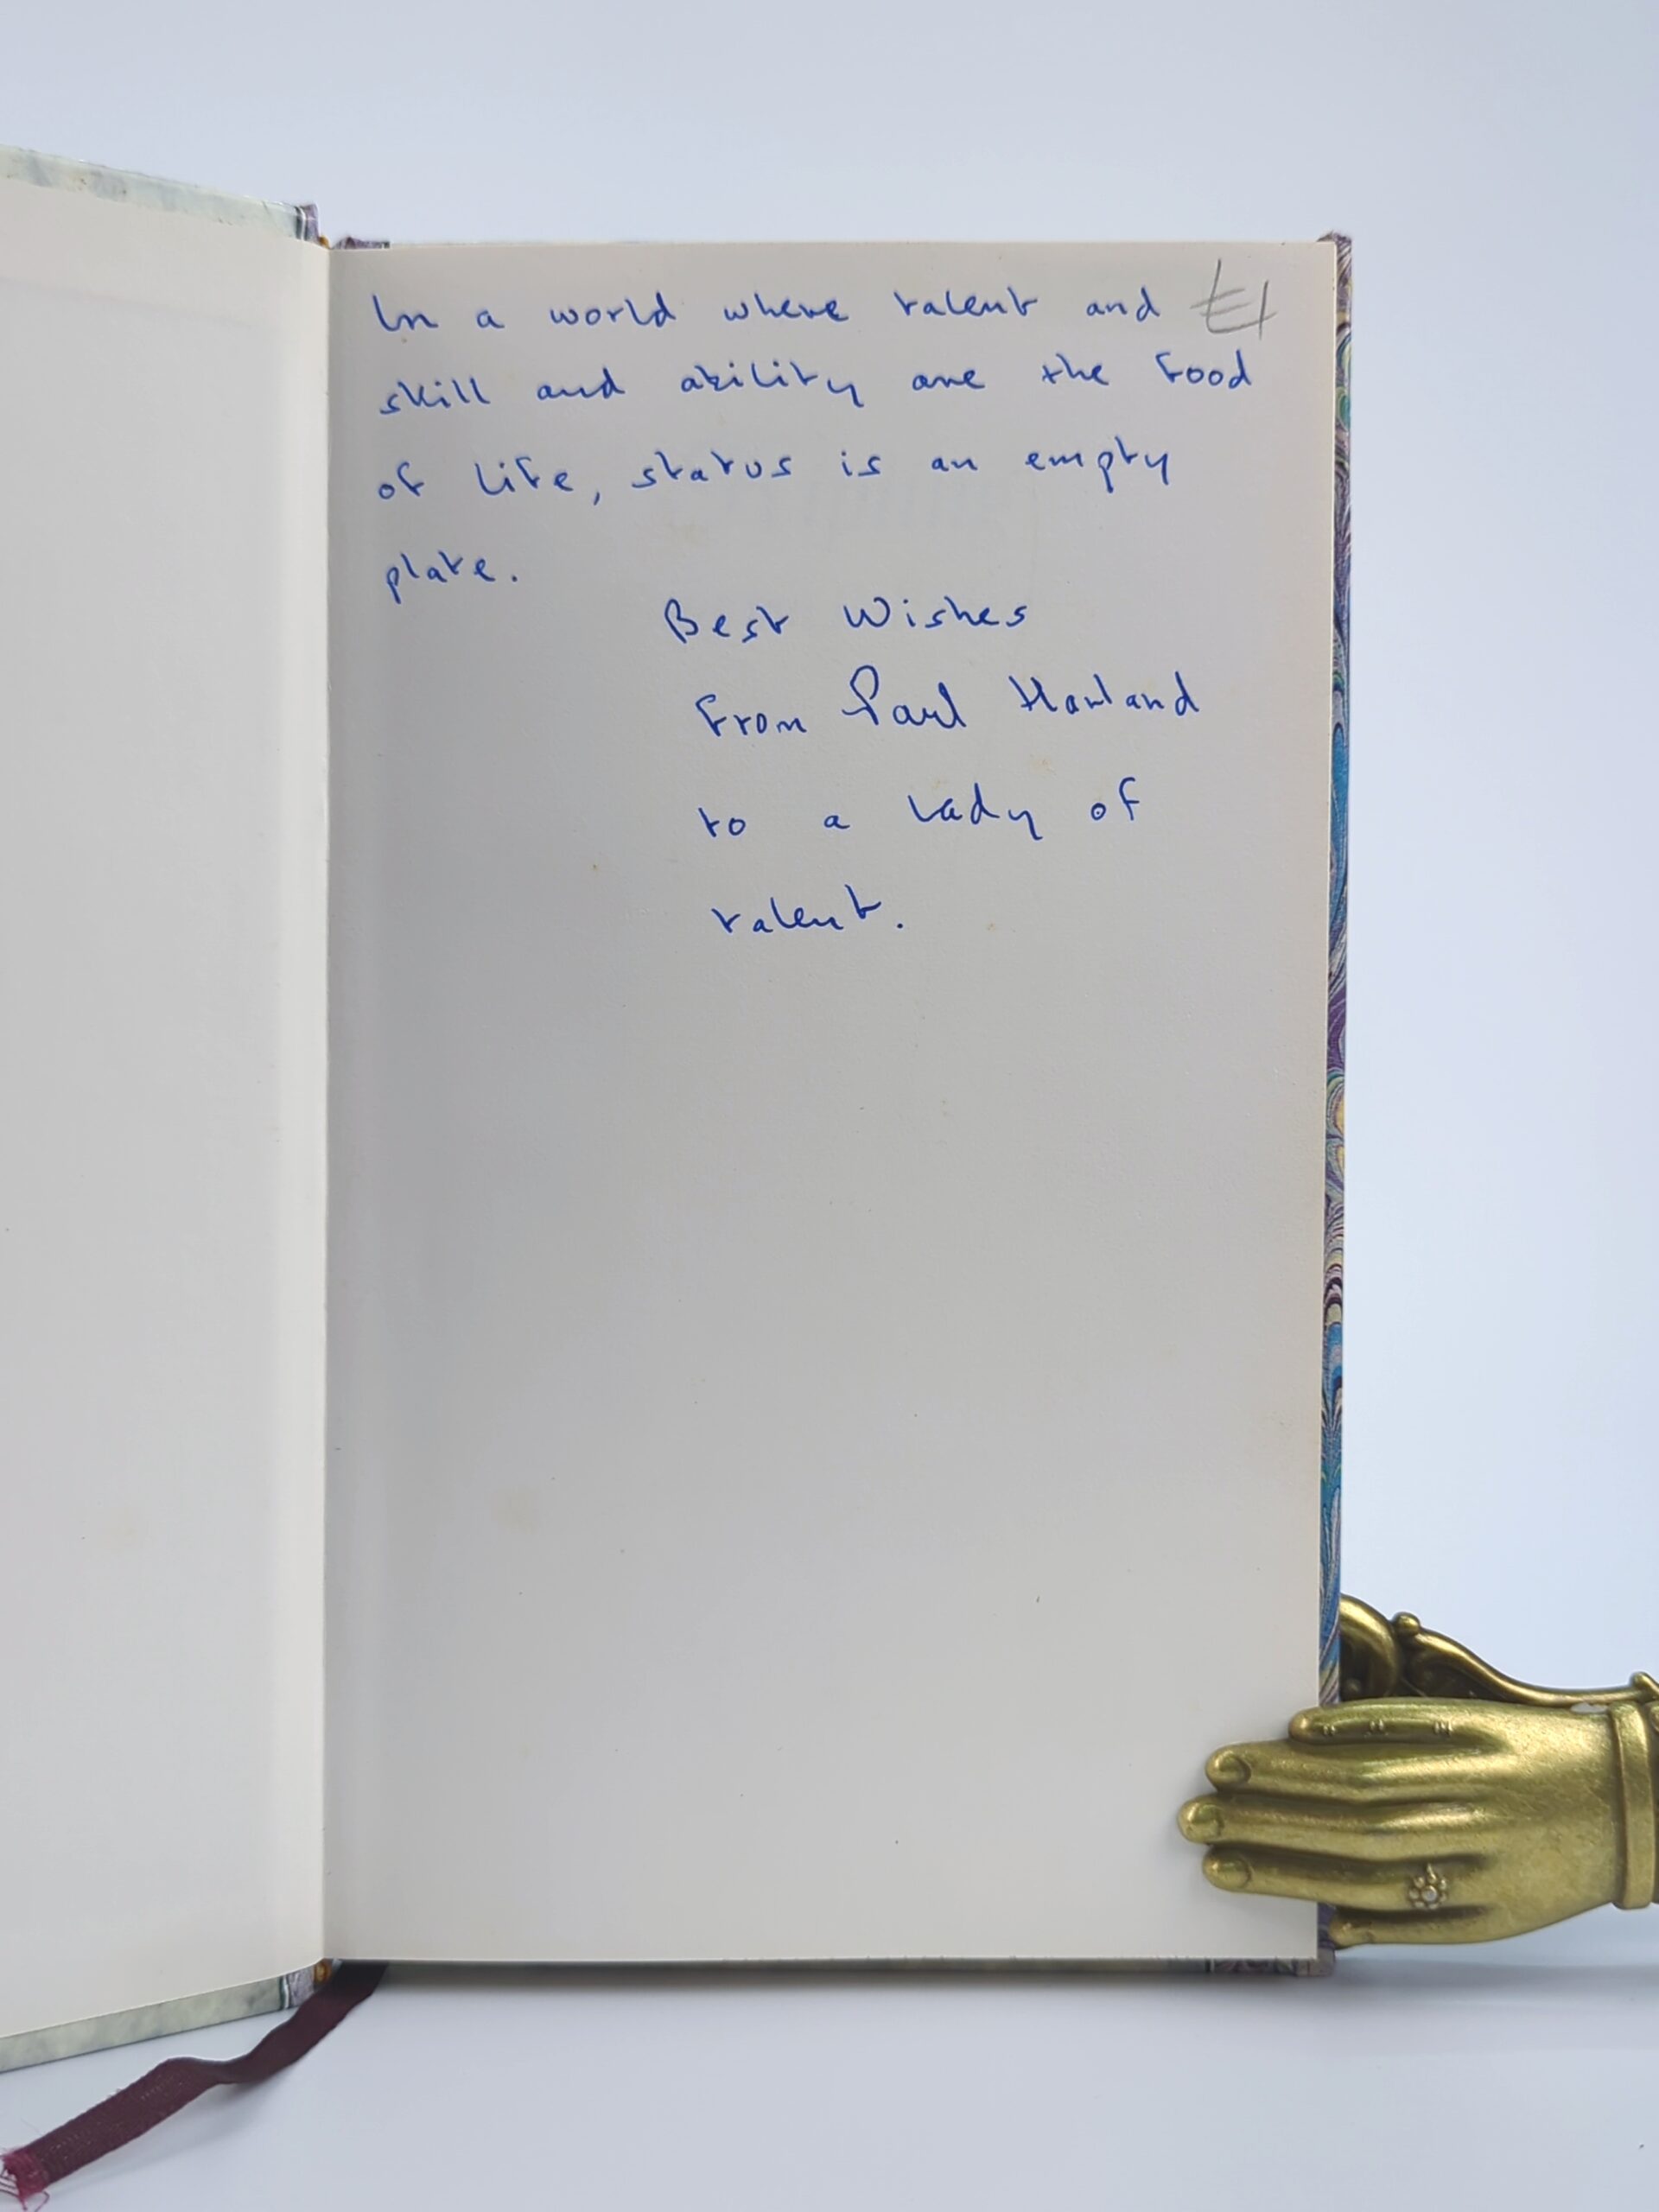 In a world where talent and £1
skill and ability are the food
of life, status is an empty
plate.
Best Wishes
from Paul Harland
to a lady of
talent.